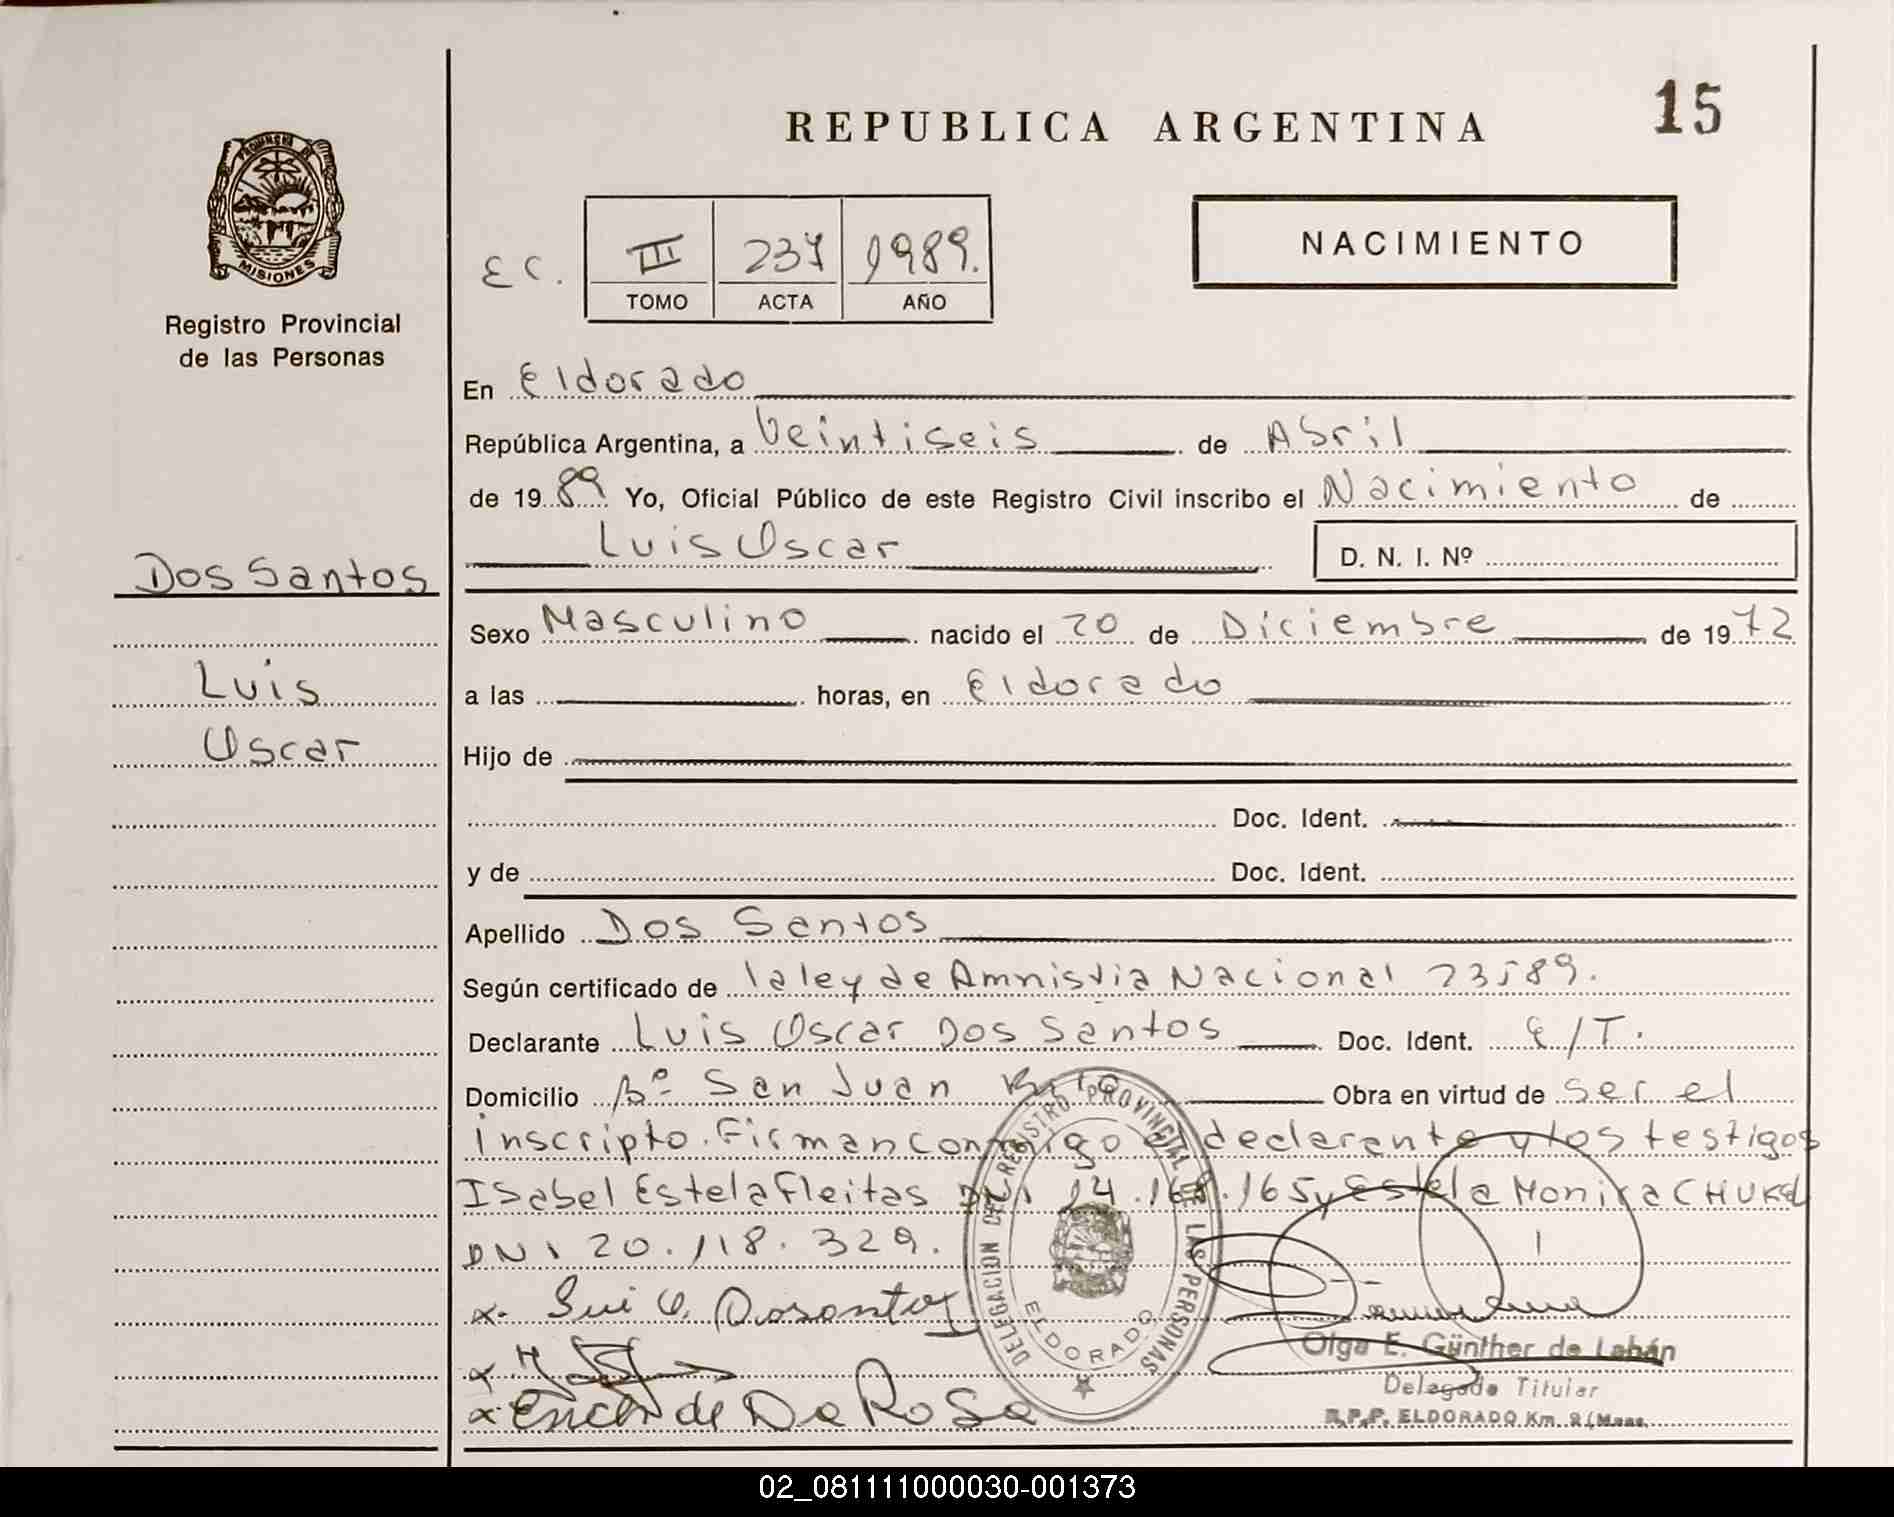 REPUBLICA ARGENTINA
15
PROVINCIA DE
MISIONES
Registro Provincial
de las Personas
NACIMIENTO
E C.
III 237 1989.
TOMO ACTA AÑO
En Eldorado
República Argentina, a Veintiseis de Abril
de 1989 Yo, Oficial Público de este Registro Civil inscribo el Nacimiento de
Luis Oscar D. N. I. Nº
Dos Santos
Luis
Oscar
Sexo Masculino nacido el 20 de Diciembre de 1972
a las horas, en Eldorado
Hijo de
Doc. Ident.
y de Doc. Ident.
Apellido Dos Santos
Según certificado de la ley de Amnistia Nacional 23589.
Declarante Luis Oscar Dos Santos Doc. Ident. E/T.
Domicilio Bº San Juan Obra en virtud de ser el
inscripto. Firman conmigo el declarante y los testigos
Isabel Estela Fleitas DNI 14.168.165 y Estela Monica
DNI 20.118.329.
DELEGACION DEL REGISTRO PROVINCIAL DE LAS PERSONAS
ELDORADO
Olga E. Günther de Labán
Delegada Titular
R.P.P. ELDORADO Km. 9 (Mnes.
02_081111000030-001373